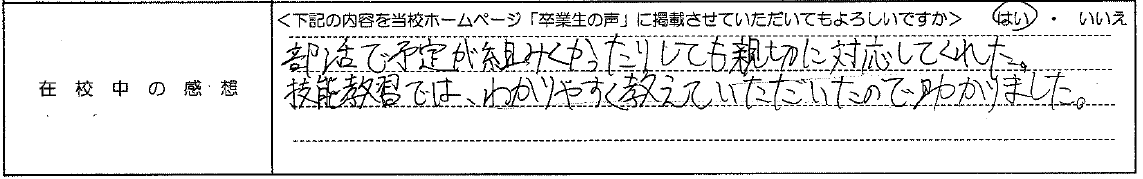 ＜下記の内容を当校ホームページ「卒業生の声」に掲載させていただいてもよろしいですか＞ はい ・ いいえ
在校中の感想
部活で予定が組みくかったりしても親切に対応してくれた。
技能教習では、わかりやすく教えていただいたので助かりました。